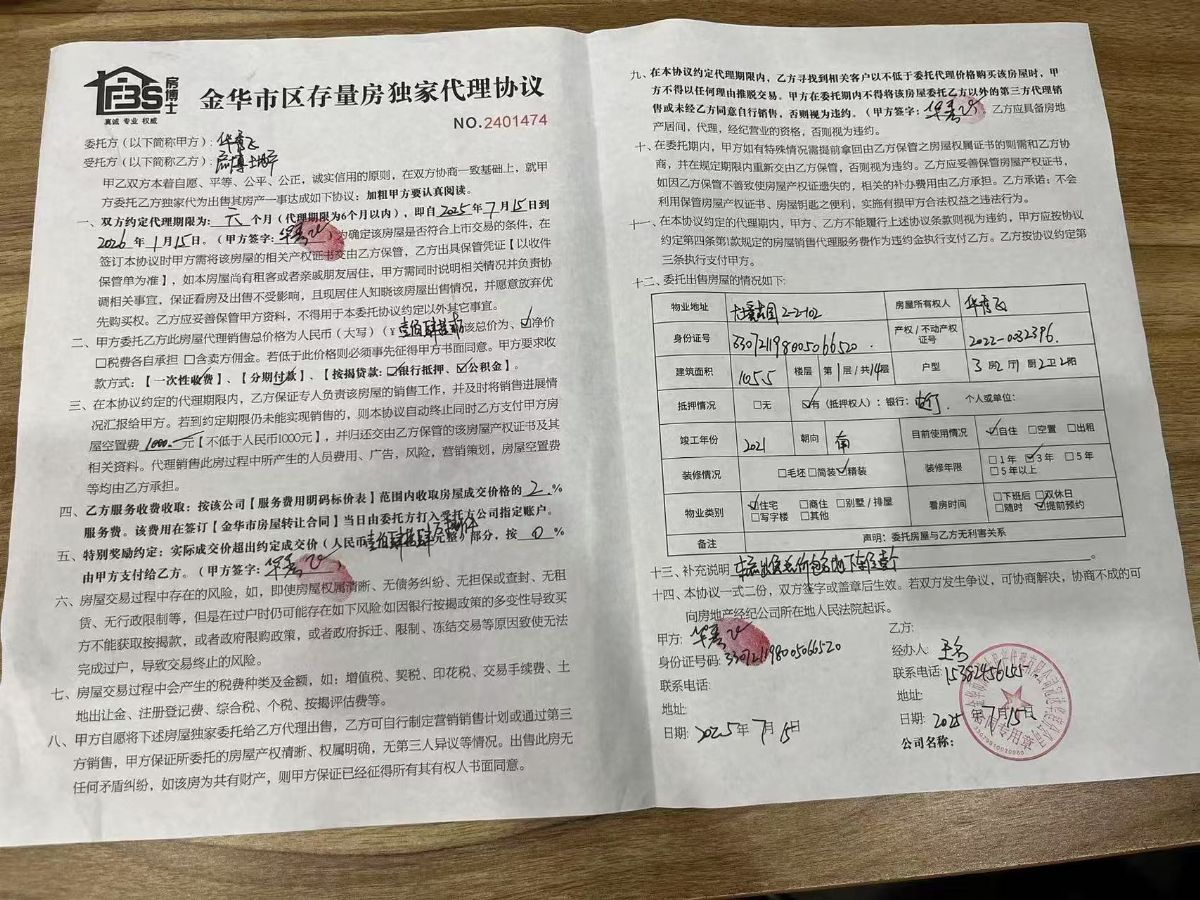 FBS
房博士
真诚 专业 权威
金华市区存量房独家代理协议
NO.2401474
委托方（以下简称甲方）：华秀飞
受托方（以下简称乙方）：房博士
甲乙双方本着自愿、平等、公平、公正，诚实信用的原则，在双方协商一致基础上，就甲
方委托乙方独家代为出售其房产一事达成如下协议：加粗甲方要认真阅读。
一、双方约定代理期限为：六个月（代理期限为6个月以内），即自2025年7月15日到
2026年1月15日。（甲方签字：华秀飞）为确定该房屋是否符合上市交易的条件，在
签订本协议时甲方需将该房屋的相关产权证书交由乙方保管，乙方出具保管凭证【以收件
保管单为准】，如本房屋尚有租客或者亲戚朋友居住，甲方需同时说明相关情况并负责协
调相关事宜，保证看房及出售不受影响，且现居住人知晓该房屋出售情况，并愿意放弃优
先购买权。乙方应妥善保管甲方资料，不得用于本委托协议约定以外其它事宜。
二、甲方委托乙方此房屋代理销售总价格为人民币（大写）（¥壹佰肆拾 该总价为、☑净价
□税费各自承担 □含卖方佣金。若低于此价格则必须事先征得甲方书面同意。甲方要求收
款方式：【一次性收费】、【分期付款】、【按揭贷款：☑银行抵押、☑公积金】。
三、在本协议约定的代理期限内，乙方保证专人负责该房屋的销售工作，并及时将销售进展情
况汇报给甲方。若到约定期限仍未能实现销售的，则本协议自动终止同时乙方支付甲方房
屋空置费1000元【不低于人民币1000元】，并归还交由乙方保管的该房屋产权证书及其
相关资料。代理销售此房过程中所产生的人员费用、广告，风险，营销策划，房屋空置费
等均由乙方承担。
四、乙方服务收费收取：按该公司【服务费用明码标价表】范围内收取房屋成交价格的2.%
服务费。该费用在签订【金华市房屋转让合同】当日由委托方打入受托方公司指定账户。
五、特别奖励约定：实际成交价超出约定成交价（人民币壹佰肆拾肆 元整）部分，按0%
由甲方支付给乙方。（甲方签字：华秀飞）
六、房屋交易过程中存在的风险，如，即使房屋权属清晰、无债务纠纷、无担保或查封、无租
赁、无行政限制等，但是在过户时仍可能存在如下风险:如因银行按揭政策的多变性导致买
方不能获取按揭款，或者政府限购政策，或者政府拆迁、限制、冻结交易等原因致使无法
完成过户，导致交易终止的风险。
七、房屋交易过程中会产生的税费种类及金额，如：增值税、契税、印花税、交易手续费、土
地出让金、注册登记费、综合税、个税、按揭评估费等。
八、甲方自愿将下述房屋独家委托给乙方代理出售，乙方可自行制定营销销售计划或通过第三
方销售，甲方保证所委托的房屋产权清晰、权属明确，无第三人异议等情况。出售此房无
任何矛盾纠纷，如该房为共有财产，则甲方保证已经征得所有其有权人书面同意。
九、在本协议约定代理期限内，乙方寻找到相关客户以不低于委托代理价格购买该房屋时，甲
方不得以任何理由推脱交易。甲方在委托期内不得将该房屋委托乙方以外的第三方代理销
售或未经乙方同意自行销售，否则视为违约。（甲方签字：华秀飞）乙方应具备房地
产居间，代理，经纪营业的资格，否则视为违约。
十、在委托期内，甲方如有特殊情况需提前拿回由乙方保管之房屋权属证书的则需和乙方协
商，并在规定期限内重新交由乙方保管，否则视为违约。乙方应妥善保管房屋产权证书，
如因乙方保管不善致使房屋产权证遗失的，相关的补办费用由乙方承担。乙方承诺：不会
利用保管房屋产权证书、房屋钥匙之便利，实施有损甲方合法权益之违法行为。
十一、在本协议约定的代理期内，甲方、乙方不能履行上述协议条款则视为违约，甲方应按协议
约定第四条第1款规定的房屋销售代理服务费作为违约金执行支付乙方。乙方按协议约定第
三条执行支付甲方。
十二、委托出售房屋的情况如下:
物业地址 2-2-102 房屋所有权人 华秀飞
身份证号 330721198005066520. 产权／不动产权证号 2022-0032396.
建筑面积 105.5 楼层 第1层/共14层 户型 3房2厅1厨2卫2阳
抵押情况 □无 ☑有（抵押权人）：银行： 个人或单位:
竣工年份 2021 朝向 南 目前使用情况 ☑自住 □空置 □出租
装修情况 □毛坯 □简装 ☑精装 装修年限 □1年 ☑3年 □5年 □5年以上
物业类别 ☑住宅 □商住 □别墅／排屋 □写字楼 □其他 看房时间 □下班后 □双休日 □随时 ☑提前预约
备注 声明：委托房屋与乙方无利害关系
十三、补充说明
十四、本协议一式二份，双方签字或盖章后生效。若双方发生争议，可协商解决，协商不成的可
向房地产经纪公司所在地人民法院起诉。
甲方: 华秀飞
身份证号码: 330721198005066520
联系电话:
地址:
日期: 2025年7月15日
乙方:
经办人:
联系电话: 15382456155
地址:
日期: 2025年7月15日
公司名称: